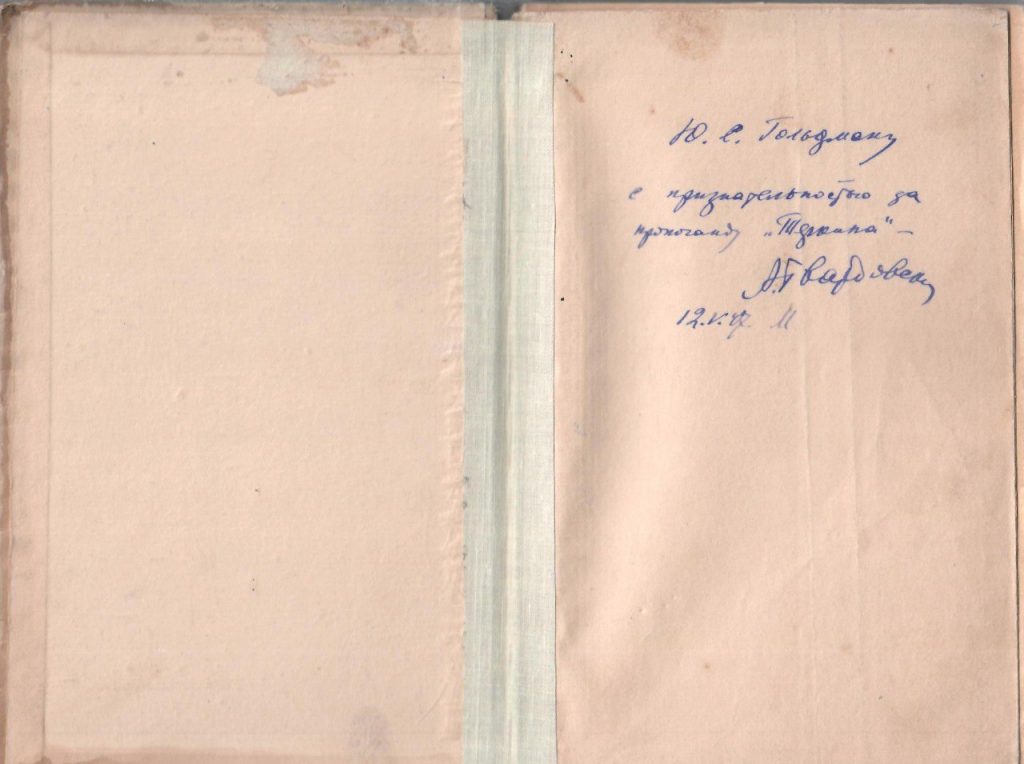 Ю. С. Гольдману
с признательностью за
пропоганду „Тёркина" –
А. Твардовский
12.V.47. М